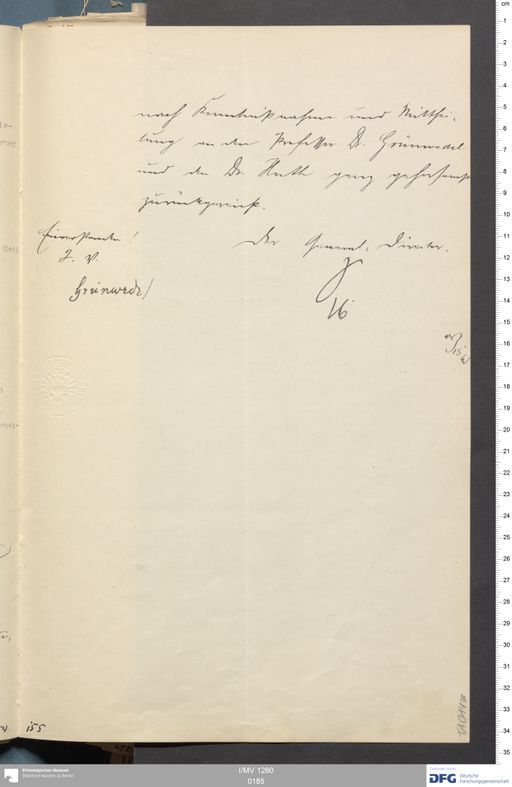 nach Kenntnißnahme und Mitthei-
lung an den Professor Dr. Grünwedel
und den Dr. Huth ganz gehorsamst
zurückgereicht.
Einverstanden!
J. V.
Grünwedel
Der General-Director.
16
155
Ethnologisches Museum
Staatliche Museen zu Berlin
I/MV 1260
0185
Gefördert durch
DFG Deutsche
Forschungsgemeinschaft
cm
1
2
3
4
5
6
7
8
9
10
11
12
13
14
15
16
17
18
19
20
21
22
23
24
25
26
27
28
29
30
31
32
33
34
35